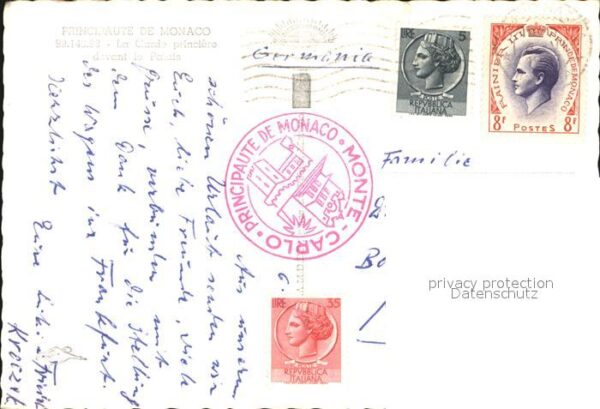 PRINCIPAUTE DE MONACO
La Garde princière
devant le Palais
Germania
LIRE 5
REPVBBLICA
ITALIANA
RAINIER III PRINCE DE MONACO
8F POSTES 8F
PRINCIPAUTE DE MONACO • MONTE-CARLO •
Familie
privacy protection
Datenschutz
LIRE 35
REPVBBLICA
ITALIANA
Aus unserem
schönen Urlaub senden wir
Euch, liebe Freunde, viele
Grüsse, verbunden mit
dem Dank für die Stellung
des Wagens in Frankfurt.
Herzlichst Eure